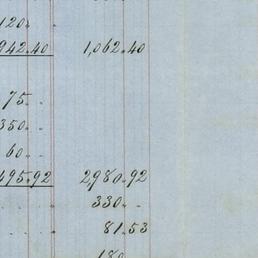 120.
942.40 1,062.40
75. .
350. .
60. .
495.92 2980.92
. . 330. .
. . 81.53
180.